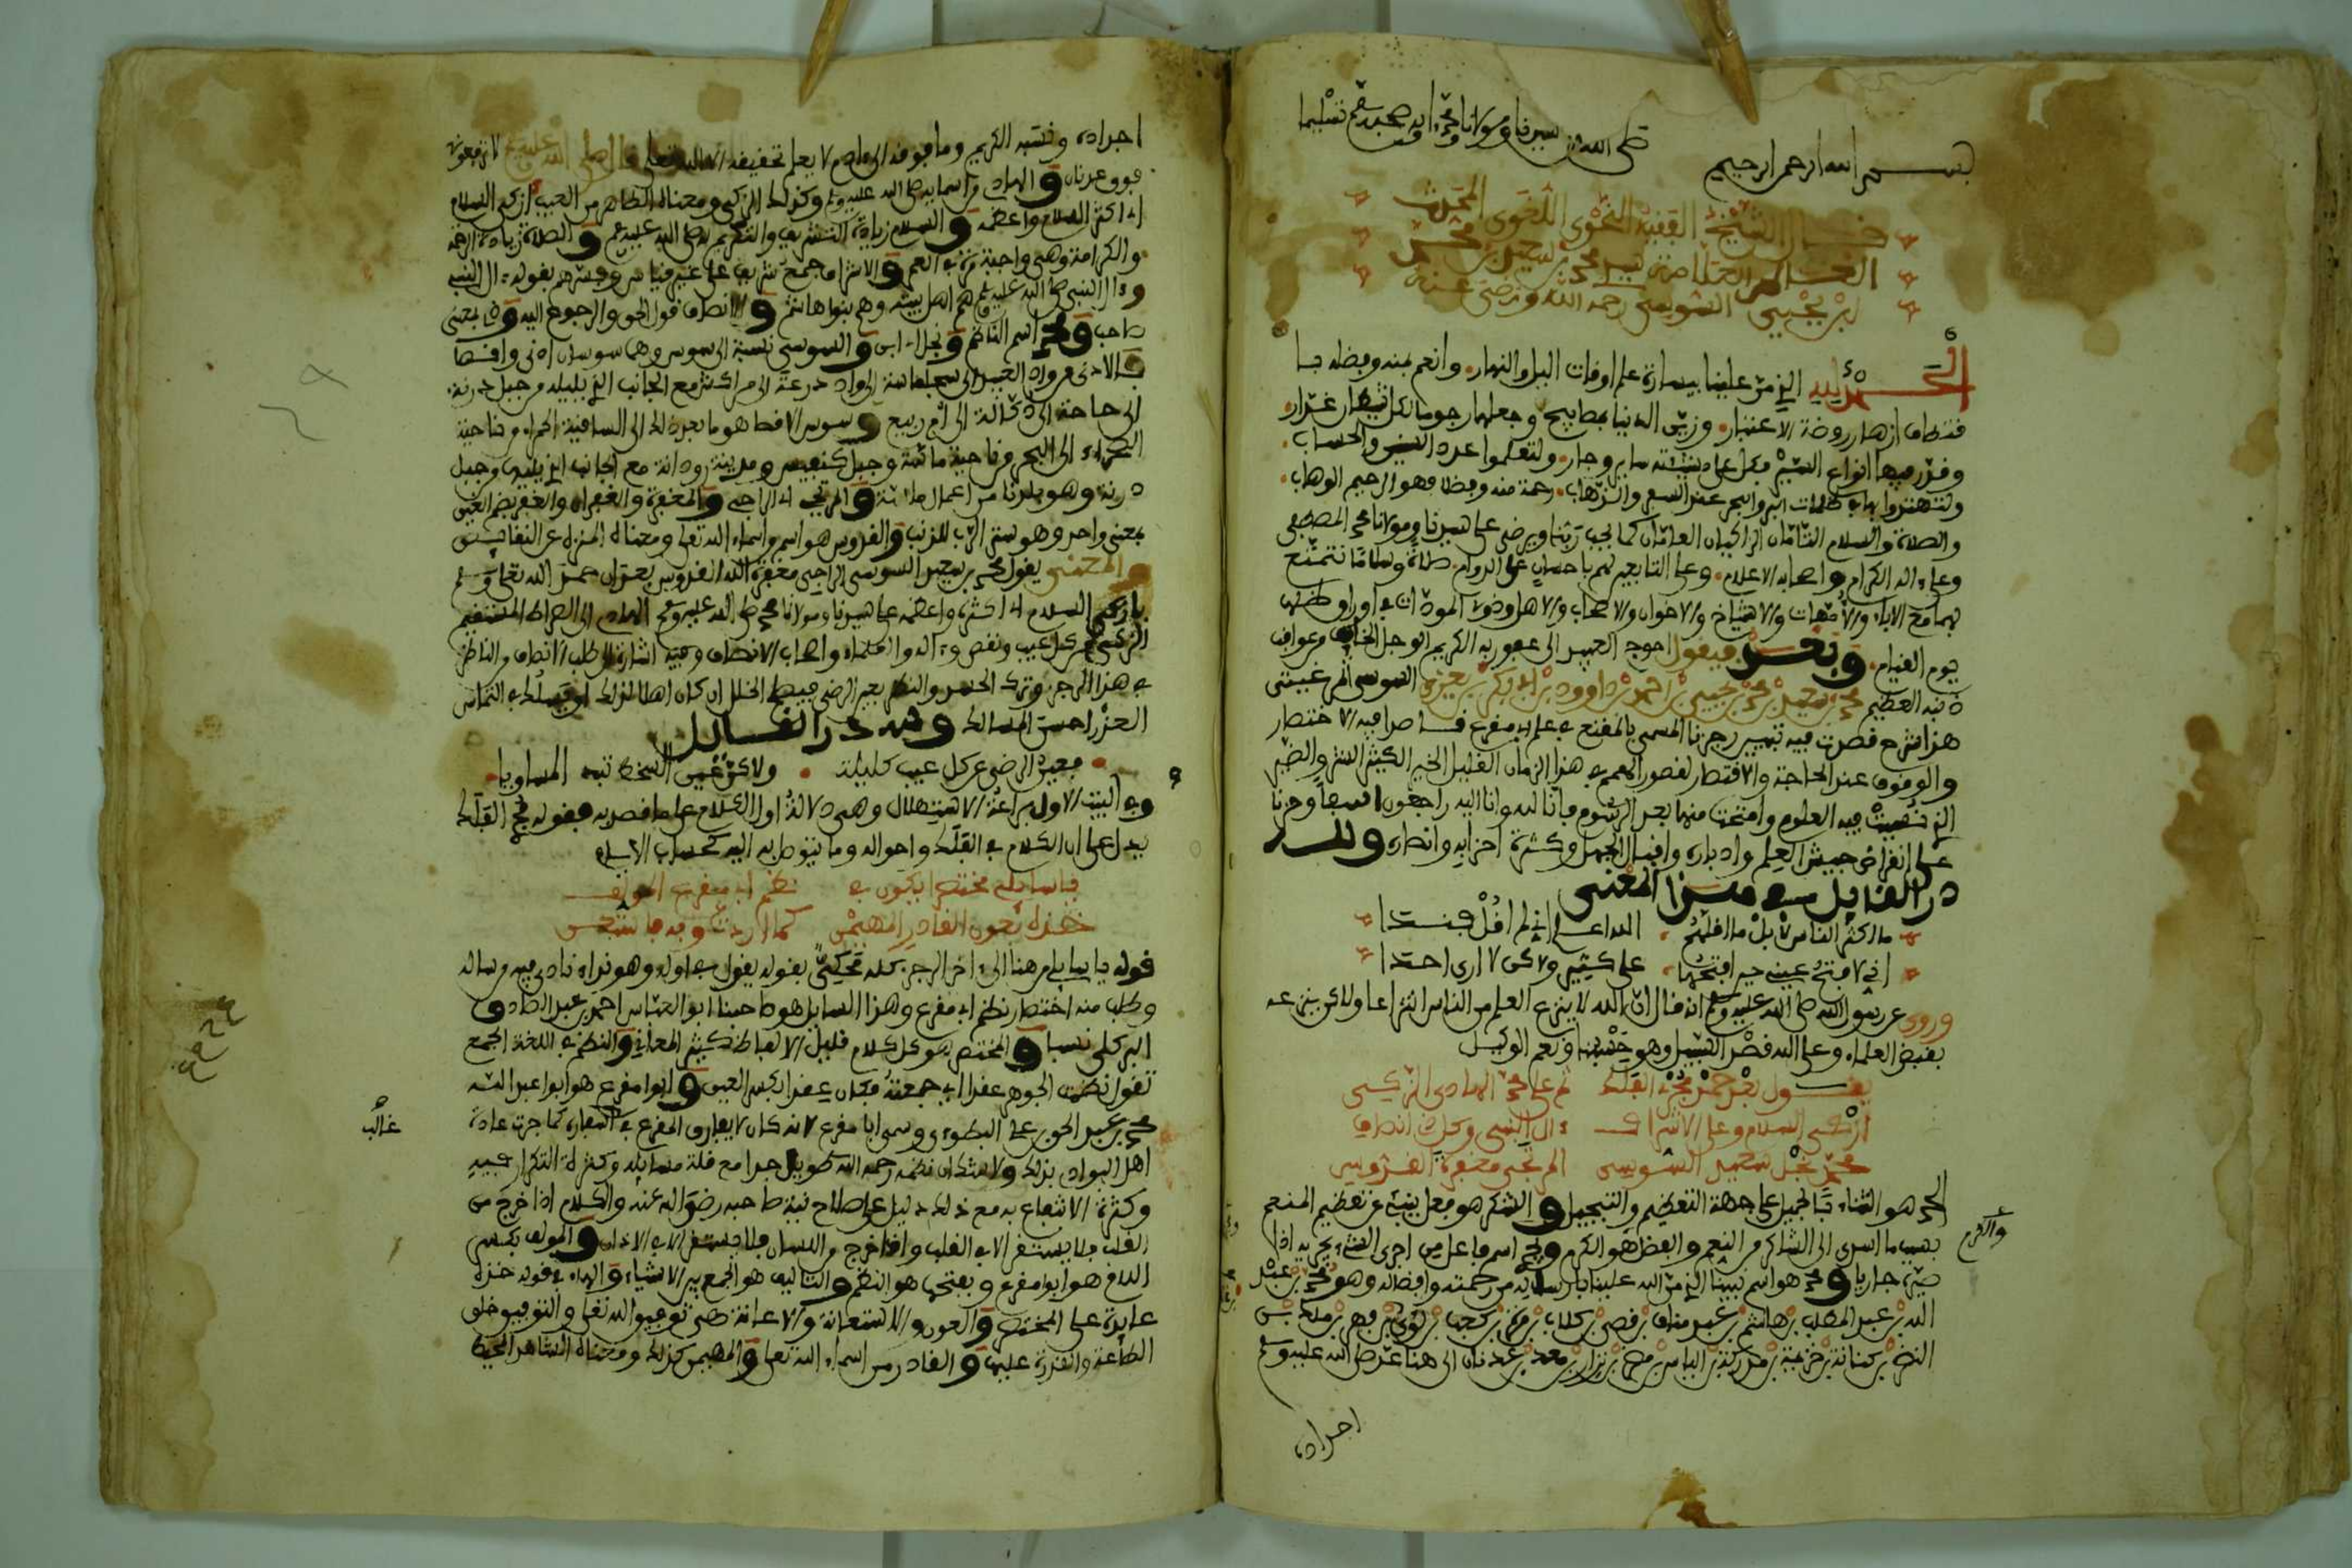 بسم الله الرحمن الرحيم صلى الله على سيدنا ومولانا محمد وآله وصحبه وسلم تسليما
قال الشيخ الفقيه النحوي اللغوي المحدث
العالم العلامة سيدي محمد بن سعيد بن محمد
ابن يحيى السوسي رحمه الله ورضي عنه
الحمد لله الذي من علينا بيسارة علم اوقات اليل والنهار وانعم بمنه وفضله بـ
قتطاف ازهار روضة الاعتبار وزين الدنيا بمصابيح وجعلها رجوما لكل شيطان غرار
وقرر فيها انواع السير فكل على نسبته سايروجار ولتعلموا عدد السنين والحساب
ولتهتدوا بها في ظلمات البر والبحر عند السعي والذهاب رحمة منه وفضلا فهو الرحيم الوهاب
والصلاة والسلام التامان الزاكيان العامان كما يحب ربنا ويرضى على سيدنا ومولانا محمد المصطفى
وعلى اله الكرام واصحابه الاعلام وعلى التابعين لهم باحسان على الدوام صلاة وسلاما نتمتع
بهما مع الاباء والامهات والاشياخ والاخوان والاصحاب والاهل وذوي المودات في اوراق ظلها
يوم القيام وبعد فيقول احوج العبيد الى عفو ربه الكريم الوجل الخايف من عواقب
ذنبه العظيم محمد بن سعيد بن محمد بن يحيى بن احمد بن داوود بن ابي بكر بن يعزى السوسي المرغيتي
هذا شرح قصدت فيه تفسير رجزنا المسمى بالمقنع في علم ابي مقرع قاصدا فيه الاختصار
والوقوف عند الحاجة والاقتصار لقصور الهمم في هذا الزمان القليل الخير الكثير الشر والضير
الذي نسيت فيه العلوم وامتحت منها بعد الرسوم فانا لله وانا اليه راجعون اسفا وحزنا
على انقراض جيش العلم وادباره واقبال الجهل وكثرة احزابه وانصاره ولله
در القايل في هذا المعنى
ما اكثر الناس لا بل ما اقلهم الله اعلم اني لم اقل فندا
اني لافتح عيني حين افتحها على كثير ولاكن لا ارى احدا
وروي عن رسول الله صلى الله عليه وسلم انه قال ان الله لا ينزع العلم من الناس انتزاعا ولاكن ينزعه
بقبض العلماء وعلى الله قصد السبيل وهو حسبنا ونعم الوكيل
يقول بعد حمد مجري الفلك ثم على محمد الهادي الزكي
ازكى السلام وعلى الاشراف ءال النبي وكل ذي انصاف
محمد نجل سعيد السوسي المرتجي مغفرة القدوس
الحمد هو الثناء بالجميل على جهة التعظيم والتبجيل والشكر هو فعل ينبئ عن تعظيم المنعم
بسبب ما اسدى الى الشاكر من النعم والفضل هو الكرم ومجر اسم فاعل من اجرى الشيء يجريه اذا
صيره جاريا ومحمد هو اسم نبينا الذي من الله علينا بارساله من رحمته وافضاله وهو محمد بن عبد
الله بن عبد المطلب بن هاشم بن عبد مناف بن قصي بن كلاب بن مرة بن كعب بن لؤي بن فهر بن مالك بن
النضر بن كنانة بن خزيمة بن مدركة بن الياس بن مضر بن نزار بن معد بن عدنان الى هنا عد صلى الله عليه وسلم
واكرم
اجداده
اجداده ونسبه الكريم وما فوقه الى ءادم لا يعلم تحقيقه الا الله تعالى
فوق عدنان والهادي من اسمايه صلى الله عليه وسلم وكذلك الزكي ومعناه الطاهر من العيب ازكى السلام
اي اكثر السلام واعظمه والسلام زيادة التشريف والتكريم له صلى الله عليه وسلم والصلاة زيادة الرحمة
والكرامة وهي واجبة مرة في العمر والاشراف جمع شريف على غير قياس وفسرهم بقوله ءال النبي
وءال النبي صلى الله عليه وسلم هم اهل بيته وهم بنوا هاشم والانصاف قول الحق والرجوع اليه وذي بمعنى
صاحب ومحمد اسم الناظم ونجل اي ابن والسوسي نسبة الى سوس وهما سوسان ادنى واقصا
فالادنى من واد العبيد الى سجلماسة الى واد درعة الى مراكش مع الجانب الذي يليه من جبل درنة
الى حاحة الى دكالة الى ام ربيع وسوس الاقصا هو ما بعد ذلك الى الساقية الحمراء من ناحية
الصحراء الى البحر من ناحية ماسة وجبل كنفيس ومدينة رودانة مع الجانب الذي يليها من جبل
درنة وهو بلدنا من اعمال ماسة والمرتجي اي الراجي والمغفرة والغفران والغفر بضم الغين
بمعنى واحد وهو ستر الرب للذنب والقدوس هو اسم من اسماء الله تعالى ومعناه المنزه عن النقايص
والمعنى يقول محمد بن سعيد السوسي الراجي مغفرة الله القدوس بعد ان حمد الله تعالى وسلم
بازكى السلام اي اكثره واعظمه على سيدنا ومولانا محمد صلى الله عليه وسلم الهادي الى الصراط المستقيم
الزكي من كل عيب ونقص وءاله والعلماء واصحاب الانصاف وفيه اشارة لطلب الانصاف من الناظر
في هذا الرجز وترك الحسد والنظر بعين الرضى فيصلح الخلل ان كان اهلا لذلك او يسلك في التماس
العذر احسن المسالك ولله در القايل
فعين الرضى عن كل عيب كليلة ولاكن عين السخط تبدي المساويا
وفي البيت الاول براعة الاستهلال وهي دلالة اول الكلام على ما قصد به فقوله مجر الفلك
يدل على ان الكلام في الفلك واحواله وما يتوصل به اليه كحساب الايام
ياسايلي مختصرا يكون في نظم ابي مقرع المولف
خذه بعون القادر المهيمن كما اردت وبه فاستعن
قوله ياسايلي من هنا الى ءاخر الرجز كله محكي بقوله يقول في اوله وهو نداء نادى فيه من ساله
وطلب منه اختصار نظم ابي مقرع وهذا السايل هو صاحبنا ابو العباس احمد بن عبد الصادق
البركلي نسبا والمختصر هو كل كلام قليل الالفاظ كثير المعاني والنظم في اللغة الجمع
تقول نظمت الجوهر عقدا اي جمعته فكان عقدا بكسر العين وابوا مقرع هو ابوا عبد الله
محمد بن عبد الحق بن علي البطوي وسمي ابا مقرع لانه كان لا يفارق المقرع في اسفاره كما جرت عادة
اهل البوادي بذلك ولا شك ان نظمه رحمه الله طويل جدا مع قلة مسايله وكثرة التكرار فيه
وكثرة الانتفاع به مع ذلك دليل على صلاح نية صاحبه رضي الله عنه والكلام اذا خرج من
القلب فلا يستقر الا في القلب واذا خرج من اللسان فلا يستقر الا في الاذان والمولف بكسر
اللام هو ابوا مقرع وبفتحها هو النظم والتاليف هو الجمع بين الاشياء والهاء في قوله خذه
عايدة على المختصر والعون والاستعانة والاعانة هي توفيق الله تعالى والتوفيق خلق
الطاعة والقدرة عليها والقادر من اسماء الله تعالى والمهيمن كذلك ومعناه الشاهد المحيط
غالب